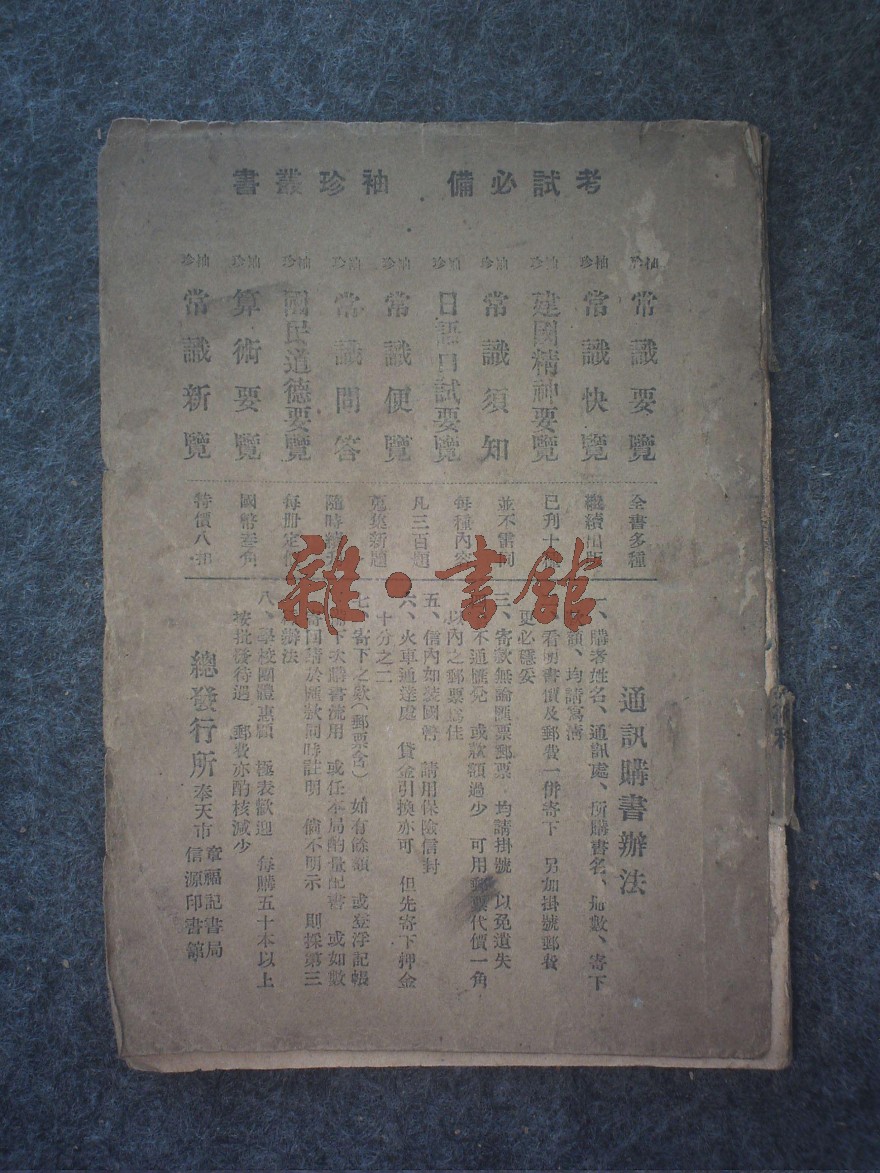 考試必備 袖珍叢書
袖珍 常識要覽
袖珍 常識快覽
袖珍 建國精神要覽
袖珍 常識須知
袖珍 日語口試要覽
袖珍 常識便覽
袖珍 常識問答
袖珍 國民道德要覽
袖珍 算術要覽
袖珍 常識新覽
全書多種
繼續出版
已刊十種
並不雷同
每種內容
凡三百題
蒐集新題
隨時
每冊定價
國幣叁角
特價八扣
通訊購書辦法
一、購者姓名、通訊處、所購書名、冊數、寄下
額、均請寫清
看明書價及郵費一併寄下 另加掛號郵費
更必穩妥
三、寄款無論匯票郵票 均請掛號 以免遺失
不通匯兌 或款額過少 可用郵票代價一角
以內之郵票為佳
五、信內如裝國幣 請用保險信封
六、火車通達處 貨金引換亦可 但先寄下押金
十分之二
七、寄下之款(郵票含) 如有餘額 或登浮記帳
下次購書流用 或任本局酌量配書 或如數
寄回請於匯款同時註明 倘不明示 則採第三
辦法
八、學校團體惠顧 極表歡迎 每購五十本以上
按批發待遇 郵費亦酌核減少
總發行所 奉天市 章福記書局
信源印書館
雜·書館